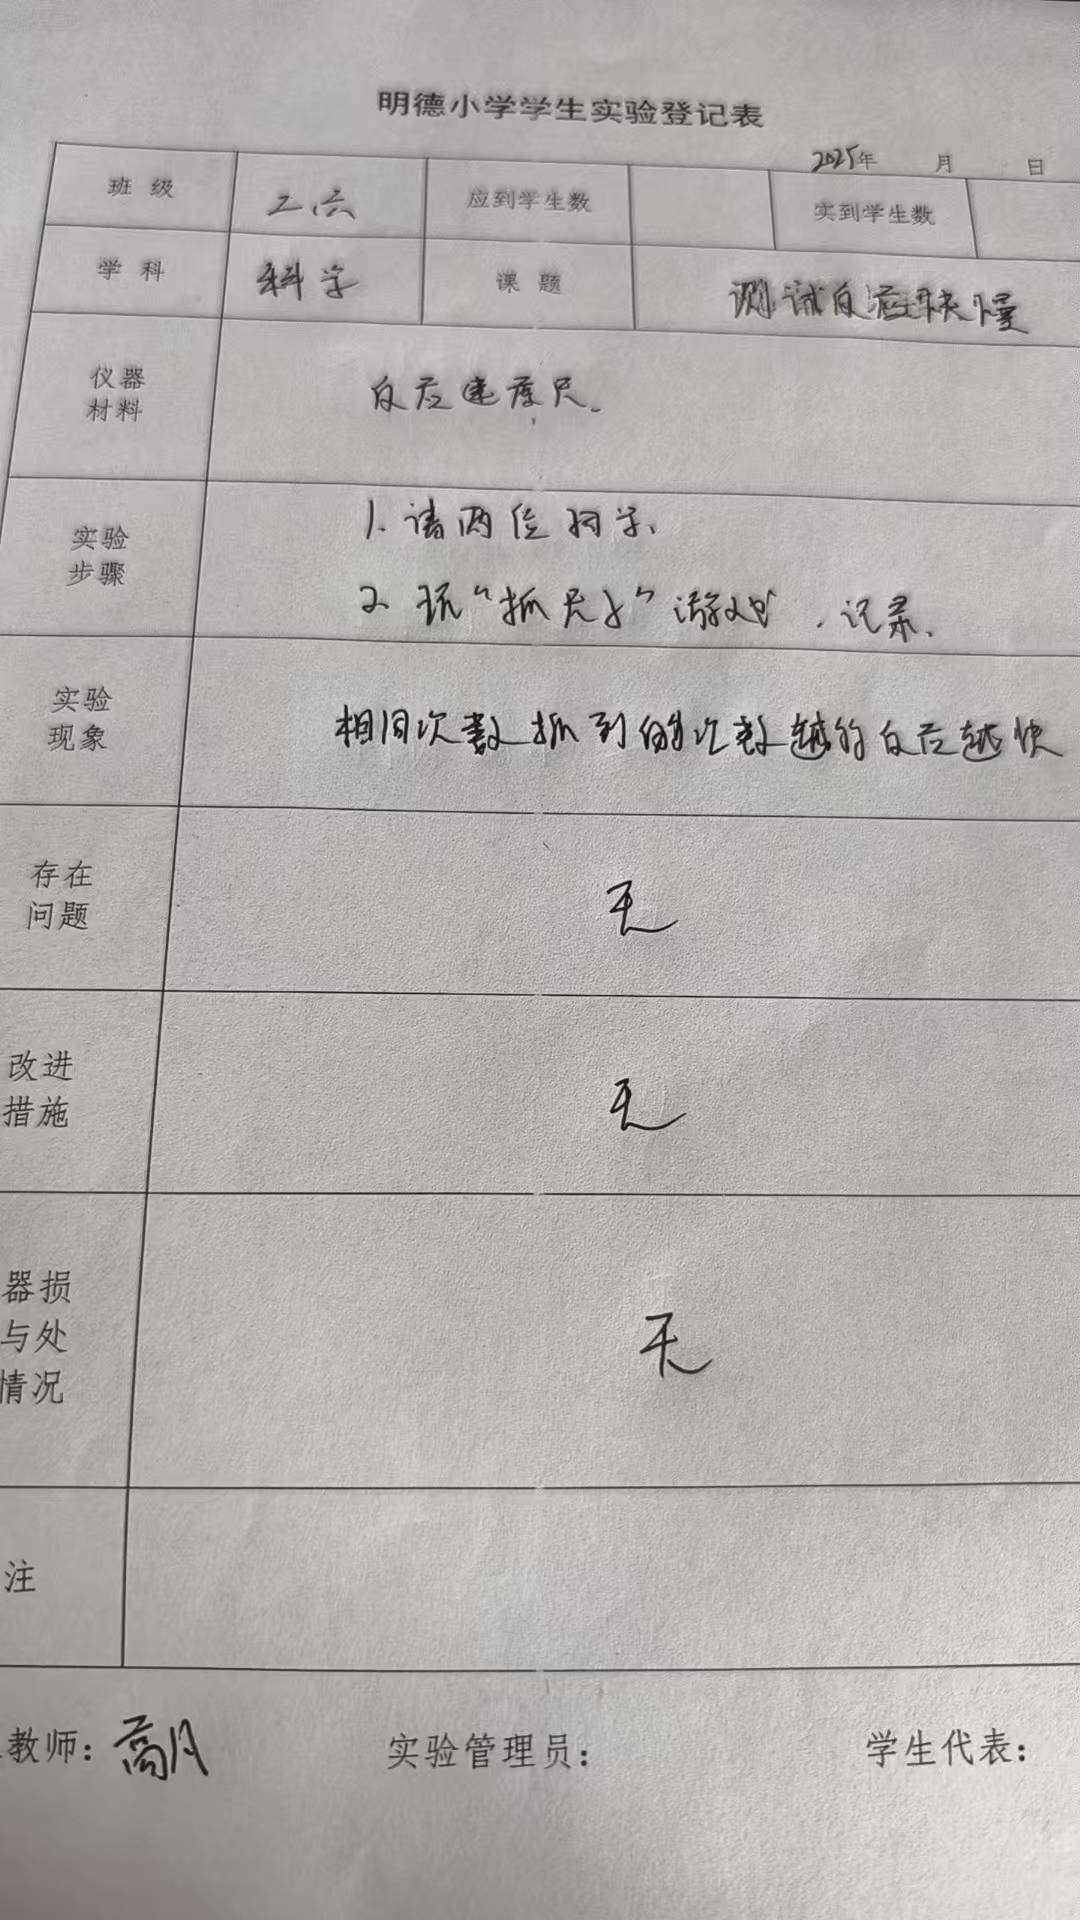 明德小学学生实验登记表
2025年 月 日
班级 二六 应到学生数 实到学生数
学科 科学 课题 测试反应快慢
仪器
材料
反应速度尺.
实验
步骤
1. 请两位同学.
2. 玩“抓尺子”游戏,记录.
实验
现象
相同次数抓到的次数越的反应越快
存在
问题
无
改进
措施
无
器损
与处
情况
无
注
教师: 高月 实验管理员: 学生代表: